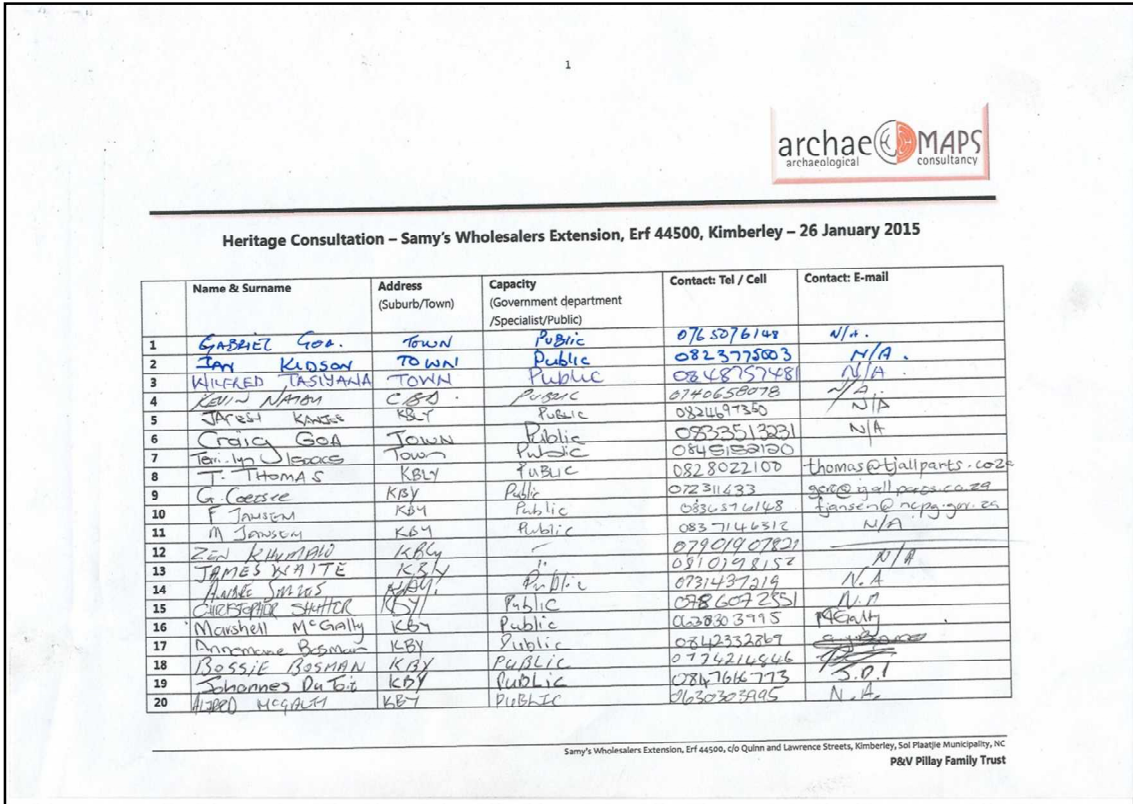 1
archae MAPS
archaeological consultancy
Heritage Consultation – Samy's Wholesalers Extension, Erf 44500, Kimberley – 26 January 2015
Name & Surname Address (Suburb/Town) Capacity (Government department /Specialist/Public) Contact: Tel / Cell Contact: E-mail
1 GABRIEL GOA. TOWN Public 0765076148 N/A.
2 IAN KUDSON TOWN Public 0823775003 N/A.
3 WILFRED TASIYANA TOWN Public 0848757481 N/A
4 KEVIN CBD. Public 0740658078 N/A.
5 KBLY PUBLIC 0824697350 N/A
6 Craig GOA TOWN Public 0833513231 N/A
7 Town Public 0845152120
8 T. THOMAS KBLY PUBLIC 0828022100 thomas@tjallparts.coza
9 G. Coetsee KBY Public 072311433
10 F JANSEN KBY Public 0836576148 fjansen@ncpg.gov.za
11 M JANSEN KBY Public 0837146312 N/A
12 KBLY 07901907821
13 JAMES WAITE KBLY " 0810198152 N/A
14 ANDRE Public 0731437219 N.A
15 CHRISTOPHER KBY Public 0786072551 N.A
16 Marshell McGally KBY Public McGally
17 Annemarie Bosman KBY Public 0842332869
18 BOSSIE BOSMAN KBY PUBLIC
19 Johannes Du Toit KBY Public 0847616773
20 ALFRED MCGALLY KBY PUBLIC 0630303995 N.A.
Samy's Wholesalers Extension, Erf 44500, c/o Quinn and Lawrence Streets, Kimberley, Sol Plaatjie Municipality, NC
P&V Pillay Family Trust